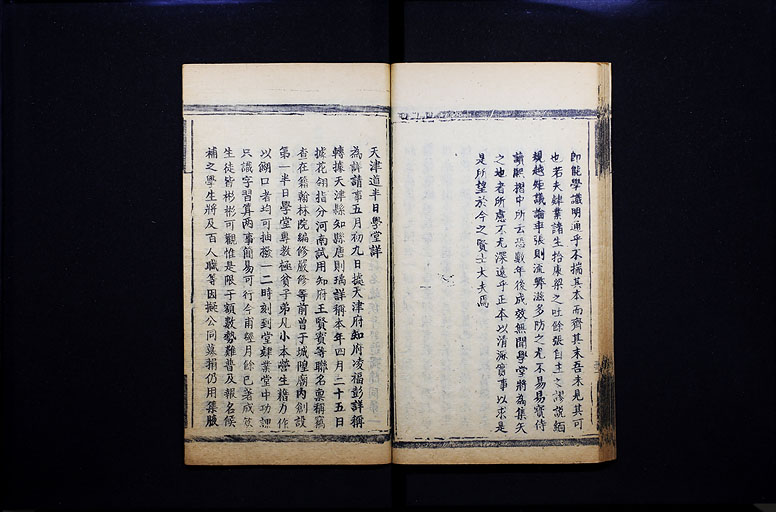 即能學識明通乎不揣其本而齊其末吾未見其可
也若夫肄業諸生拾康梁之吐餘張自主之謬說緬
規越矩議論率張則流弊滋多防之尤不易易寶侍
讀原摺中所云恐數年後成效無聞學堂將為集矢
之地者所慮不尤深遠乎正本以清源實事以求是
是所望於今之賢士大夫焉
天津道半日學堂詳
為詳請事五月初九日據天津府知府凌福彭詳稱
轉據天津縣知縣唐則瑀詳稱本年四月二十五日
據花翎指分河南試用知府王賢賓等聯名稟稱竊
查在籍翰林院編修嚴修等前曾于城隍廟內創設
第一半日學堂專教極貧子弟凡小本營生藉力作
以餬口者均可抽撥一二時刻到堂肄業堂中功課
只識字習算兩事簡易可行今甫經月餘已著成效
生徒皆彬彬可觀惟是限于額數勢難普及報名候
補之學生將及百人職等因擬公同募捐仍用集腋